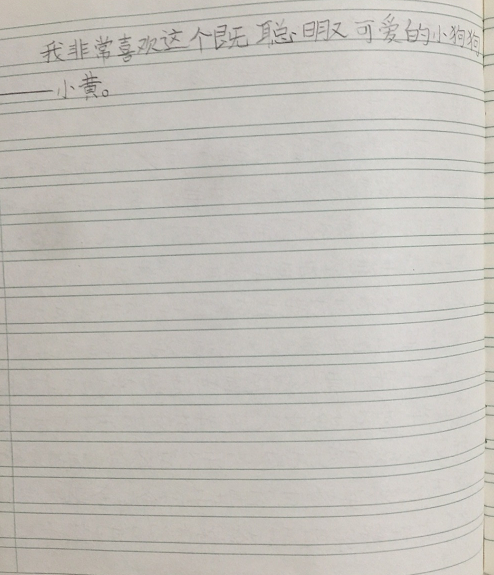 我非常喜欢这个既聪明又可爱的小狗狗
——小黄。